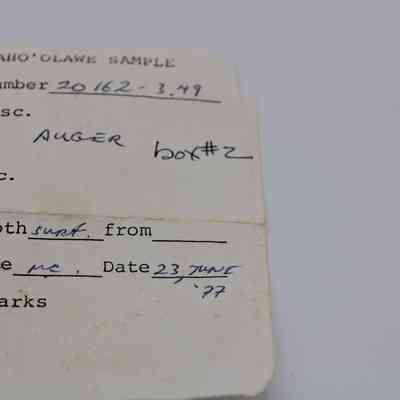 AHO'OLAWE SAMPLE
umber 20162-3.49
sc.
AUGER box#2
c.
oth surf. from
e mc. Date 23, JUNE
'77
arks